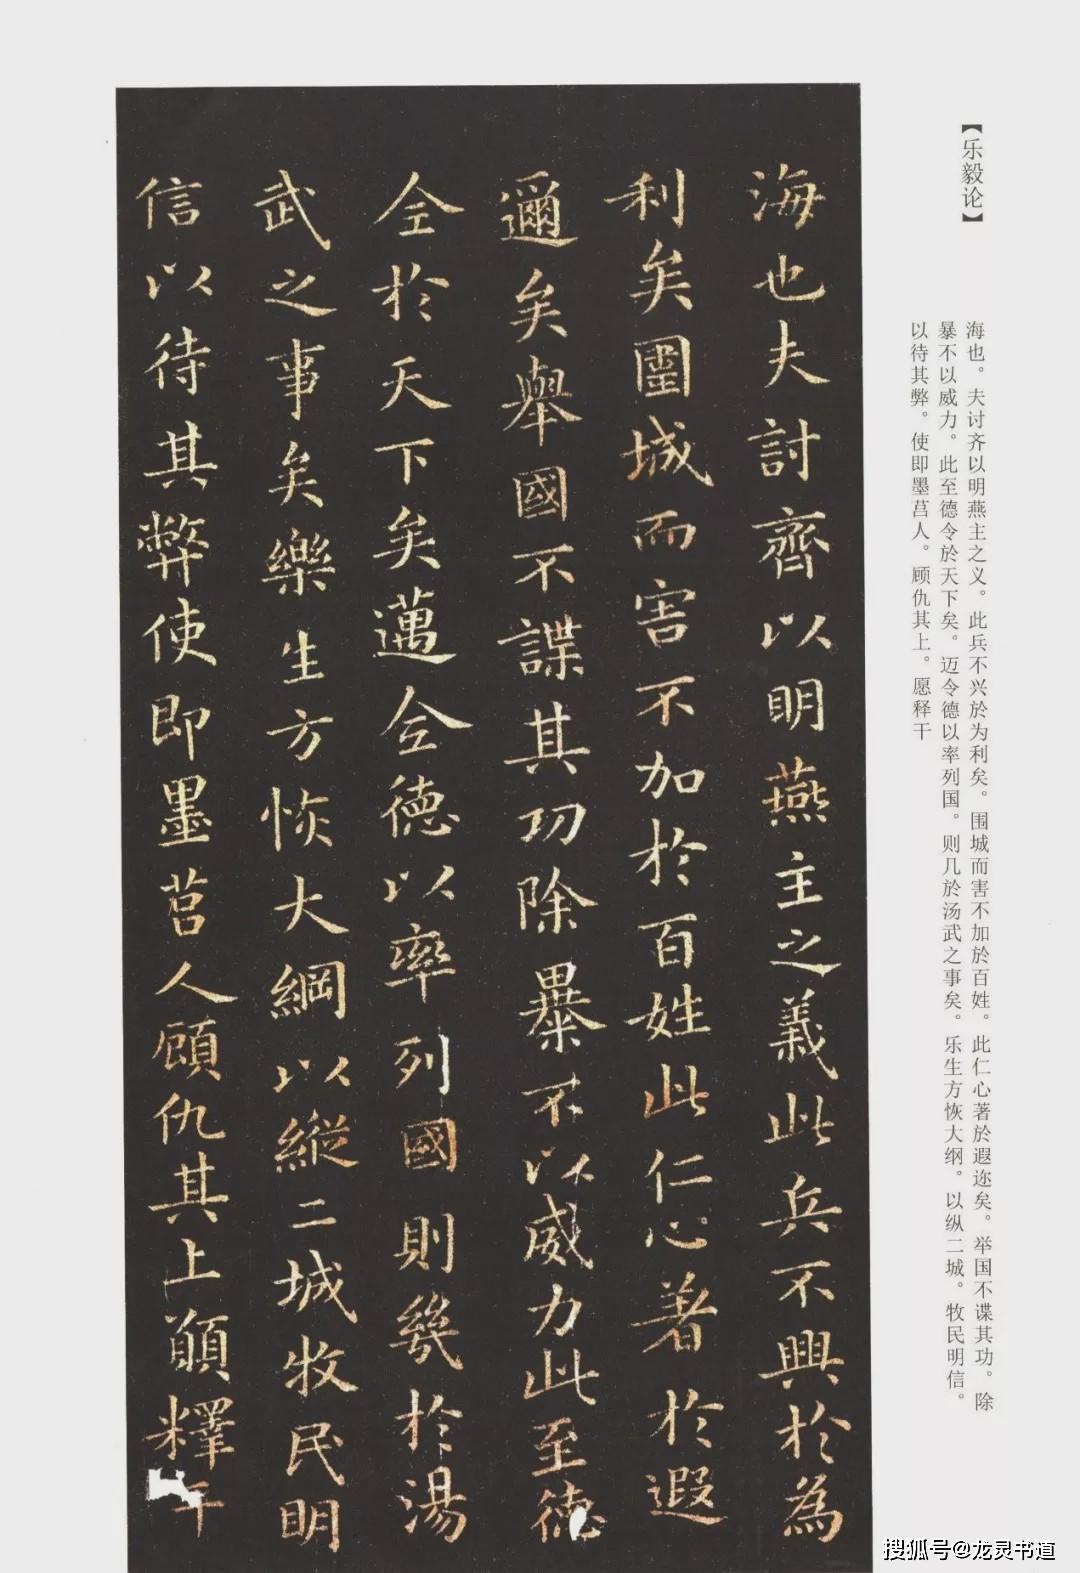 【乐毅论】
海也。夫讨齐以明燕主之义。此兵不兴於为利矣。围城而害不加於百姓。此仁心著於遐迩矣。举国不谍其功。除
暴不以威力。此至德令於天下矣。迈令德以率列国。则几於汤武之事矣。乐生方恢大纲。以纵二城。牧民明信。
以待其弊。使即墨莒人。顾仇其上。愿释干
海也夫討齊以明燕主之義此兵不興於為
利矣圍城而害不加於百姓此仁心著於遐
邇矣舉國不諜其功除暴不以威力此至德
令於天下矣邁令德以率列國則幾於湯
武之事矣樂生方恢大綱以縱二城牧民明
信以待其弊使即墨莒人顧仇其上願釋干
搜狐号@龙灵书道